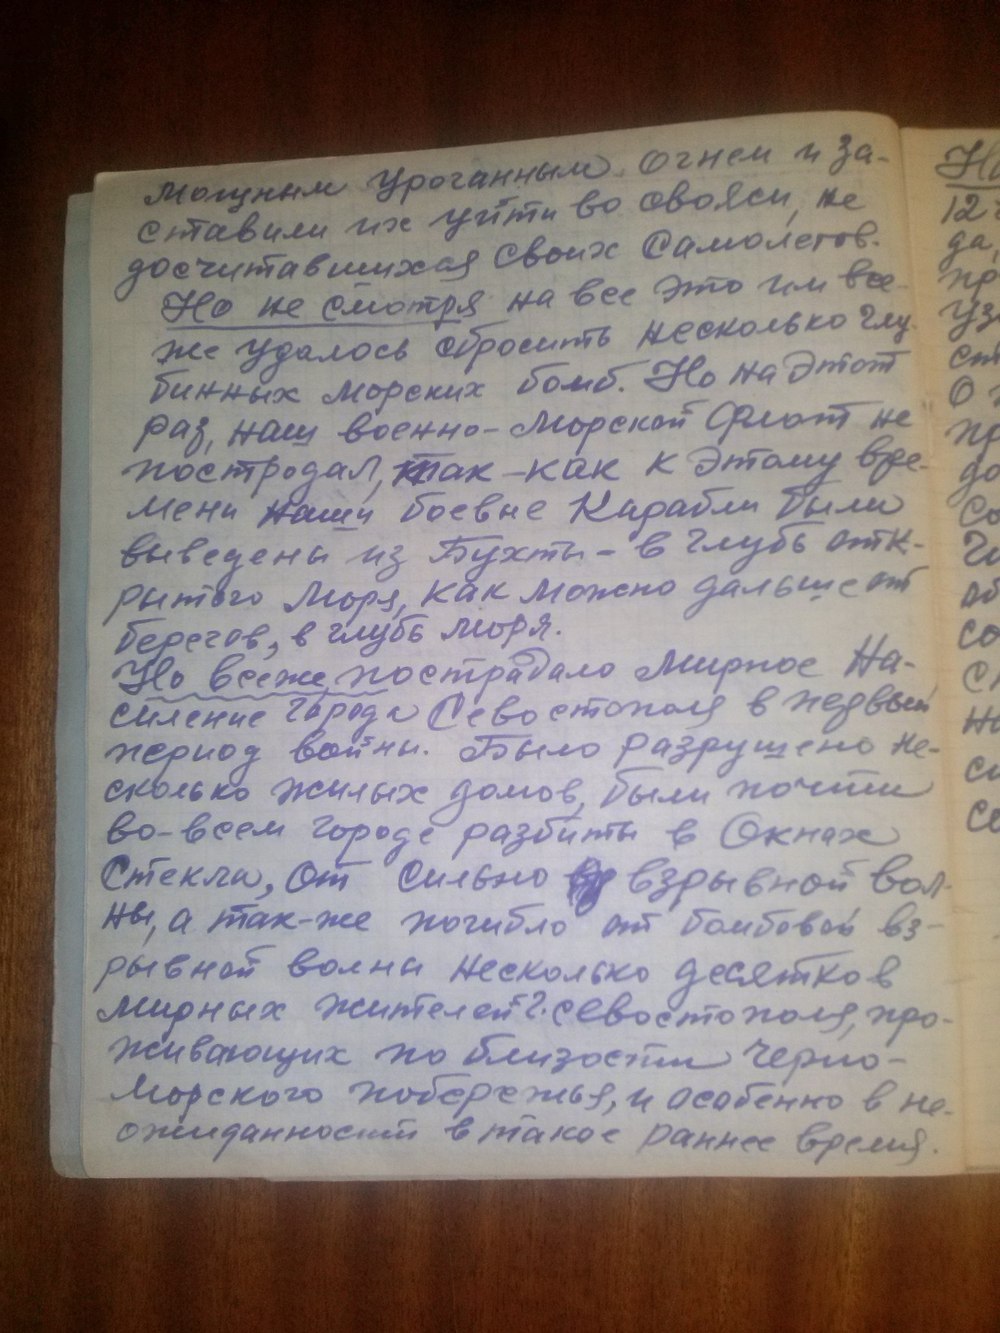 мощным уроганным огнем и за-
ставили их уйти во свояси, не
досчитавшихся своих самолетов.
Но не смотря на все это им все-
же удалось сбросить несколько глу-
бинных морских бомб. Но на этот
раз, наш военно-морской флот не
пострадал, так-как к этому вре-
мени наши боевые Карабли были
выведены из Бухты - в глубь отк-
рытого моря, как можно дальше от
берегов, в глубь моря.
Но всеже, пострадало мирное На-
силение города Севостополя в первый
период войны. Было разрушено не-
сколько жилых домов, были почти
во-всем городе разбиты в Окнах
Стекла, от сильно взрывной вол-
ны, а так-же погибло от бомбовой вз-
рывной волны несколько десятков
мирных жителей г. Севостополя, про-
живающих по близости Черно-
морского побережья, и особенно в не-
ожиданности в такое раннее время.
Но
12
да,
пр
уз
ст
О
пр
до
со